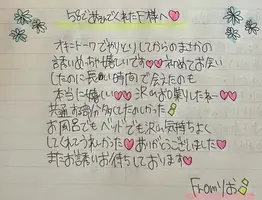 58であそんでくれたF様へ♡
オキニトークでやりとりしてからのまさかの
誘いめっちゃ嬉しいです♡♡初めてお会い
したのに長い時間で会えたのも
本当に嬉しい♡♡沢山お喋りしたねー♡♡
共通する部分多くてたのしかった
お風呂でもベッドでも沢山気持ちよく
してくれてうれしかった♡ありがとうございました♡♡
またお誘いお待ちしております♡
Fromりお